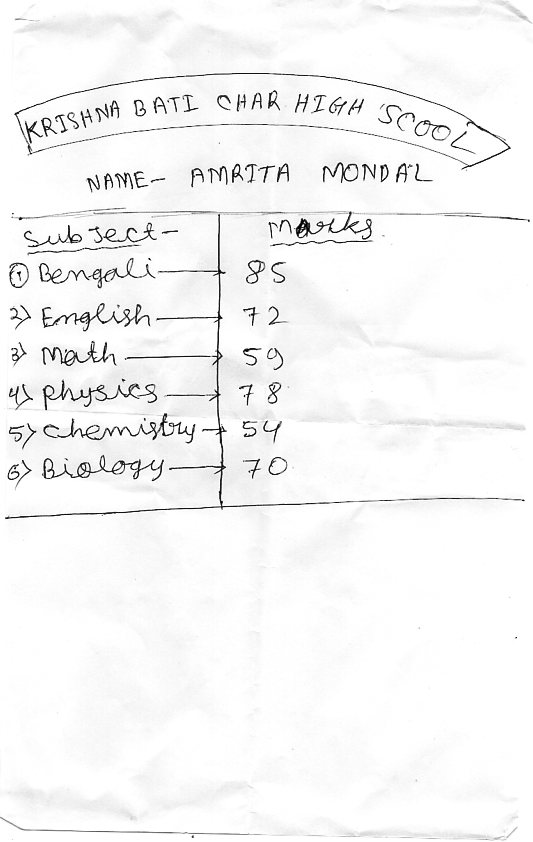 KRISHNA BATI CHAR HIGH SCOOL
NAME- AMRITA MONDAL
Subject- Marks.
① Bengali → 85
2) English → 72
3) Math → 59
4) Physics → 78
5) Chemistry → 54
6) Biology → 70